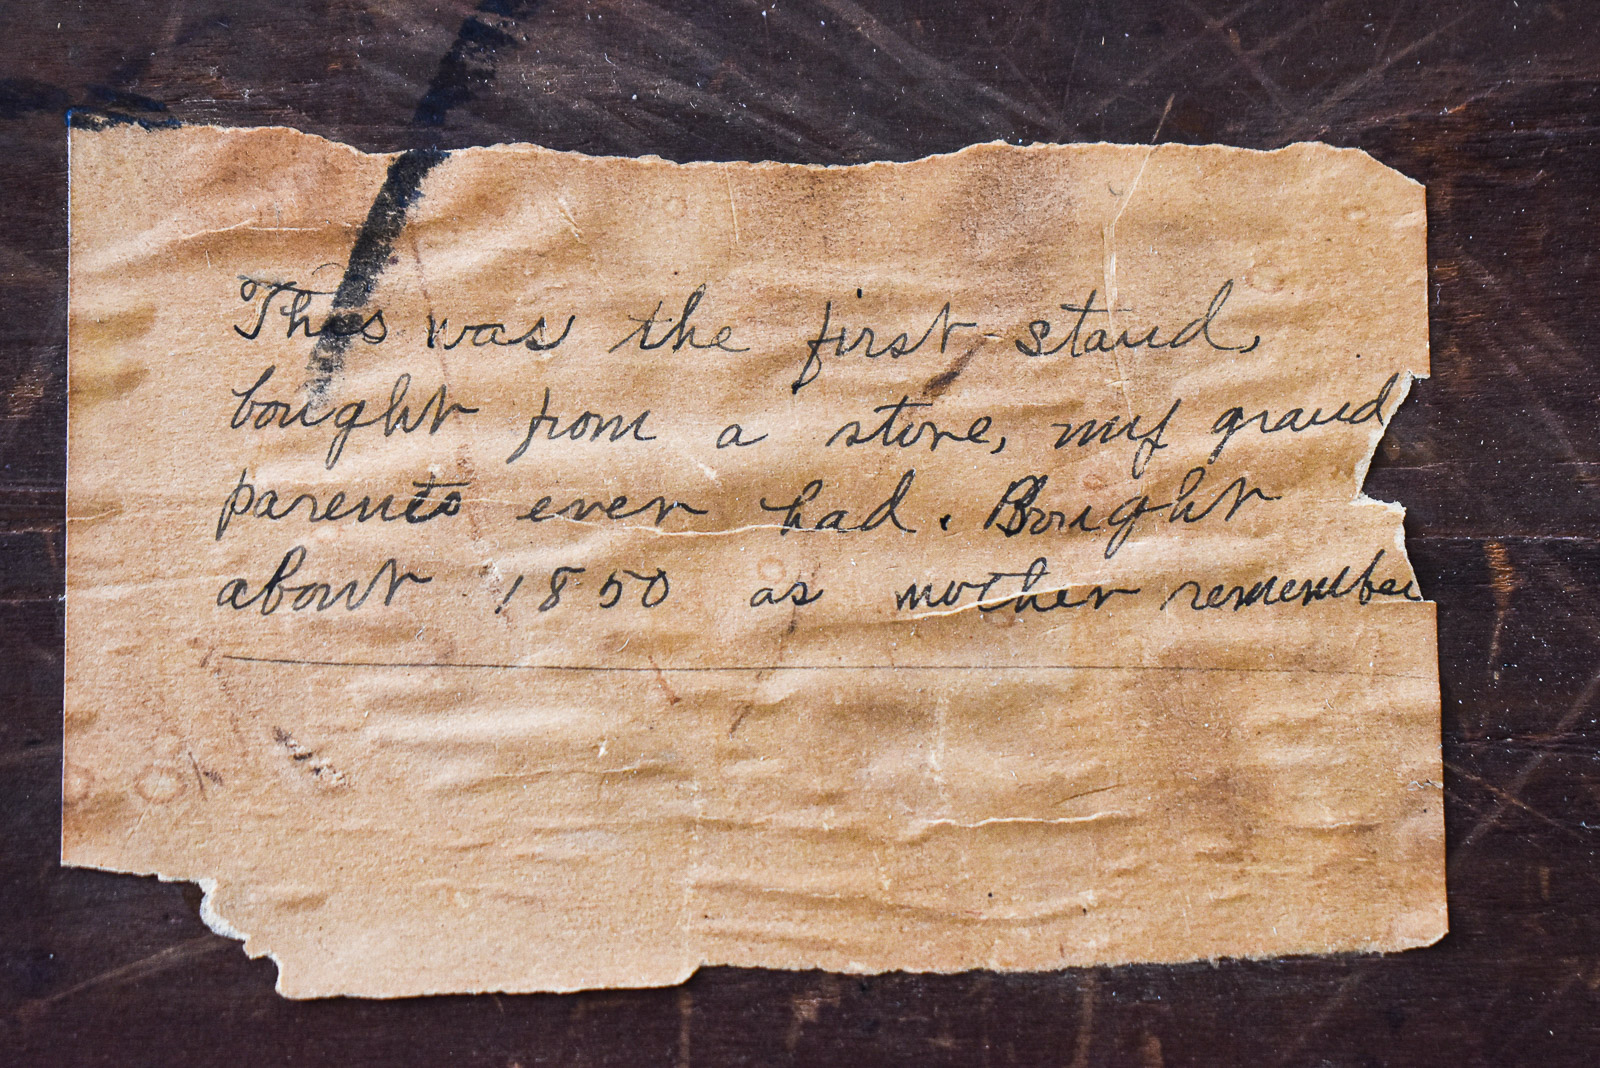 This was the first stand,
bought from a store, my grand
parents ever had. Bought
about 1850 as mother remember